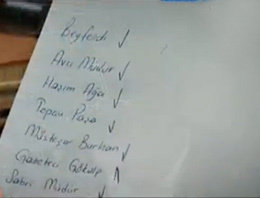 Beyfendi ✓
Avcı Müdür ✓
Hasım Ağa ✓
Topan Paşa ✓
Müsteşar Burhan ✓
Gazeteci Gökalp ✓
Sabri Müdür ✓